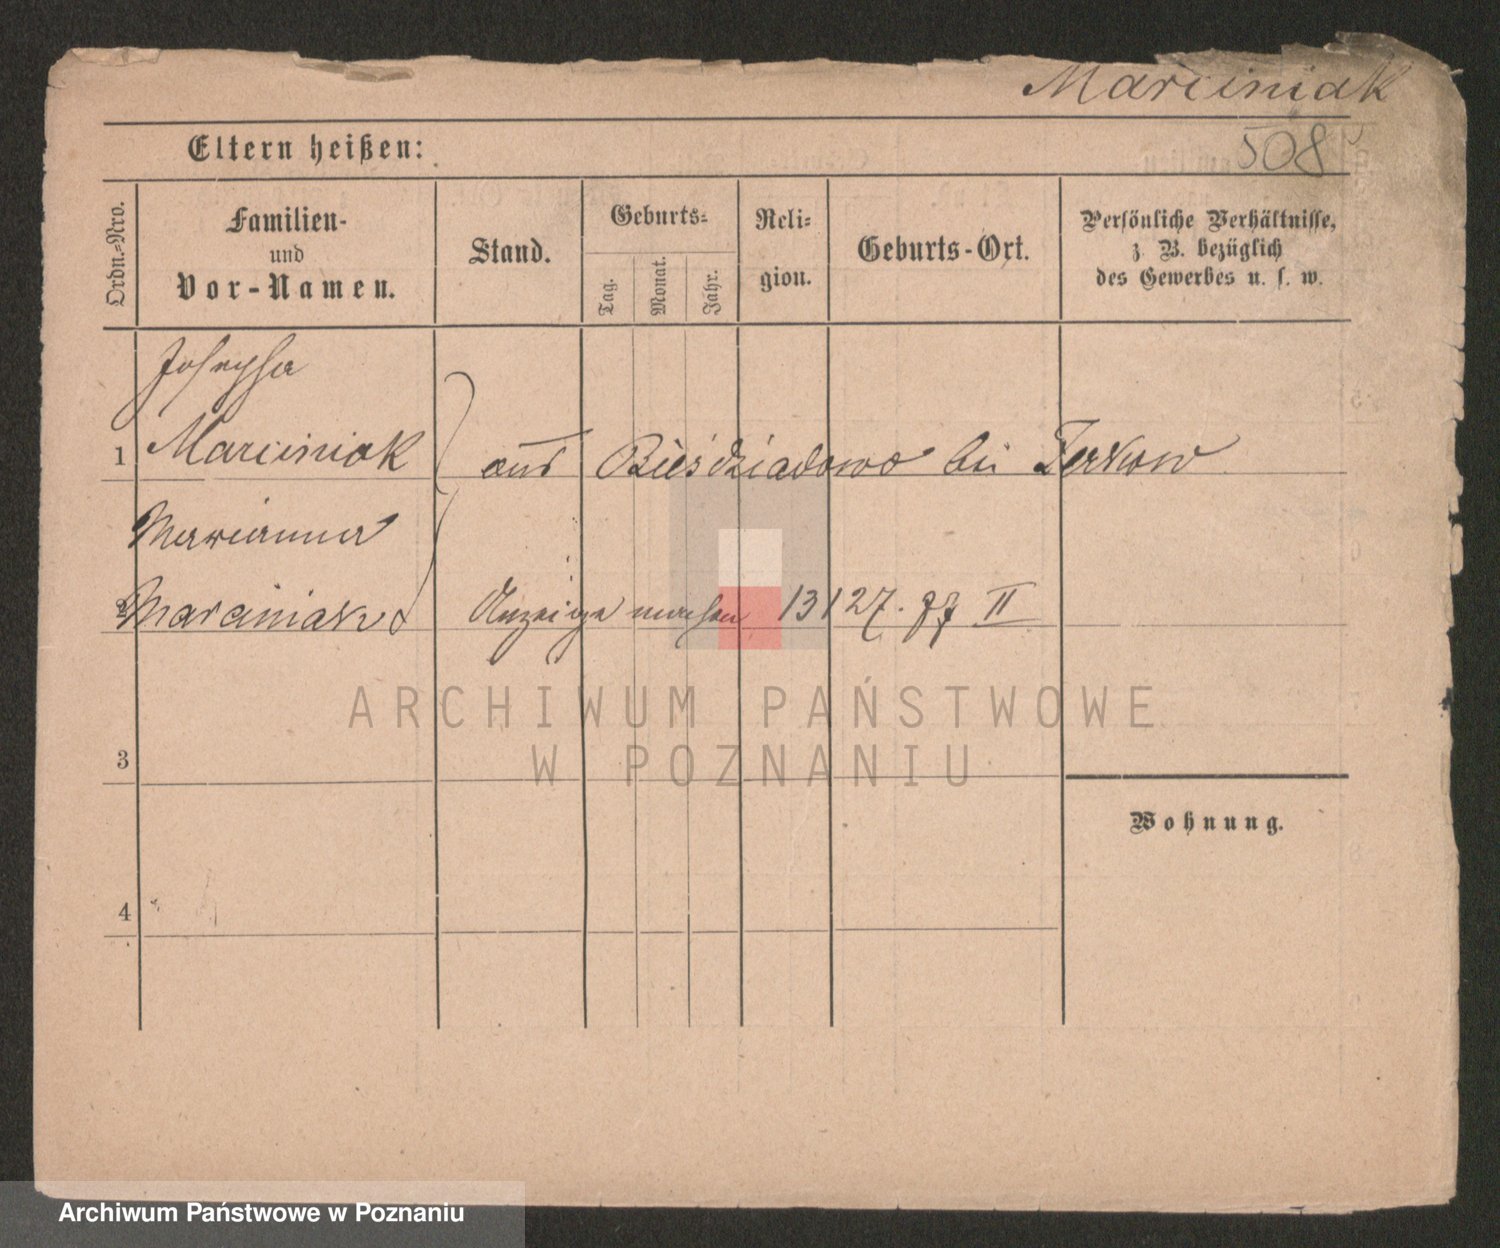 Marciniak
508
Eltern heißen:
Ordn.=Nro.
Familien-
und
Vor-Namen.
Stand.
Geburts=
Tag.
Monat.
Jahr.
Reli=
gion.
Geburts-Ort.
Persönliche Verhältnisse,
z. B. bezüglich
des Gewerbes u. s. w.
Josepha
1 Marciniak aus Biésdziadowo bei Zerkow
Marianna
2 Marciniak Anzeige machen 13127. II
ARCHIWUM PAŃSTWOWE
W POZNANIU
3
Wohnung.
4
Archiwum Państwowe w Poznaniu